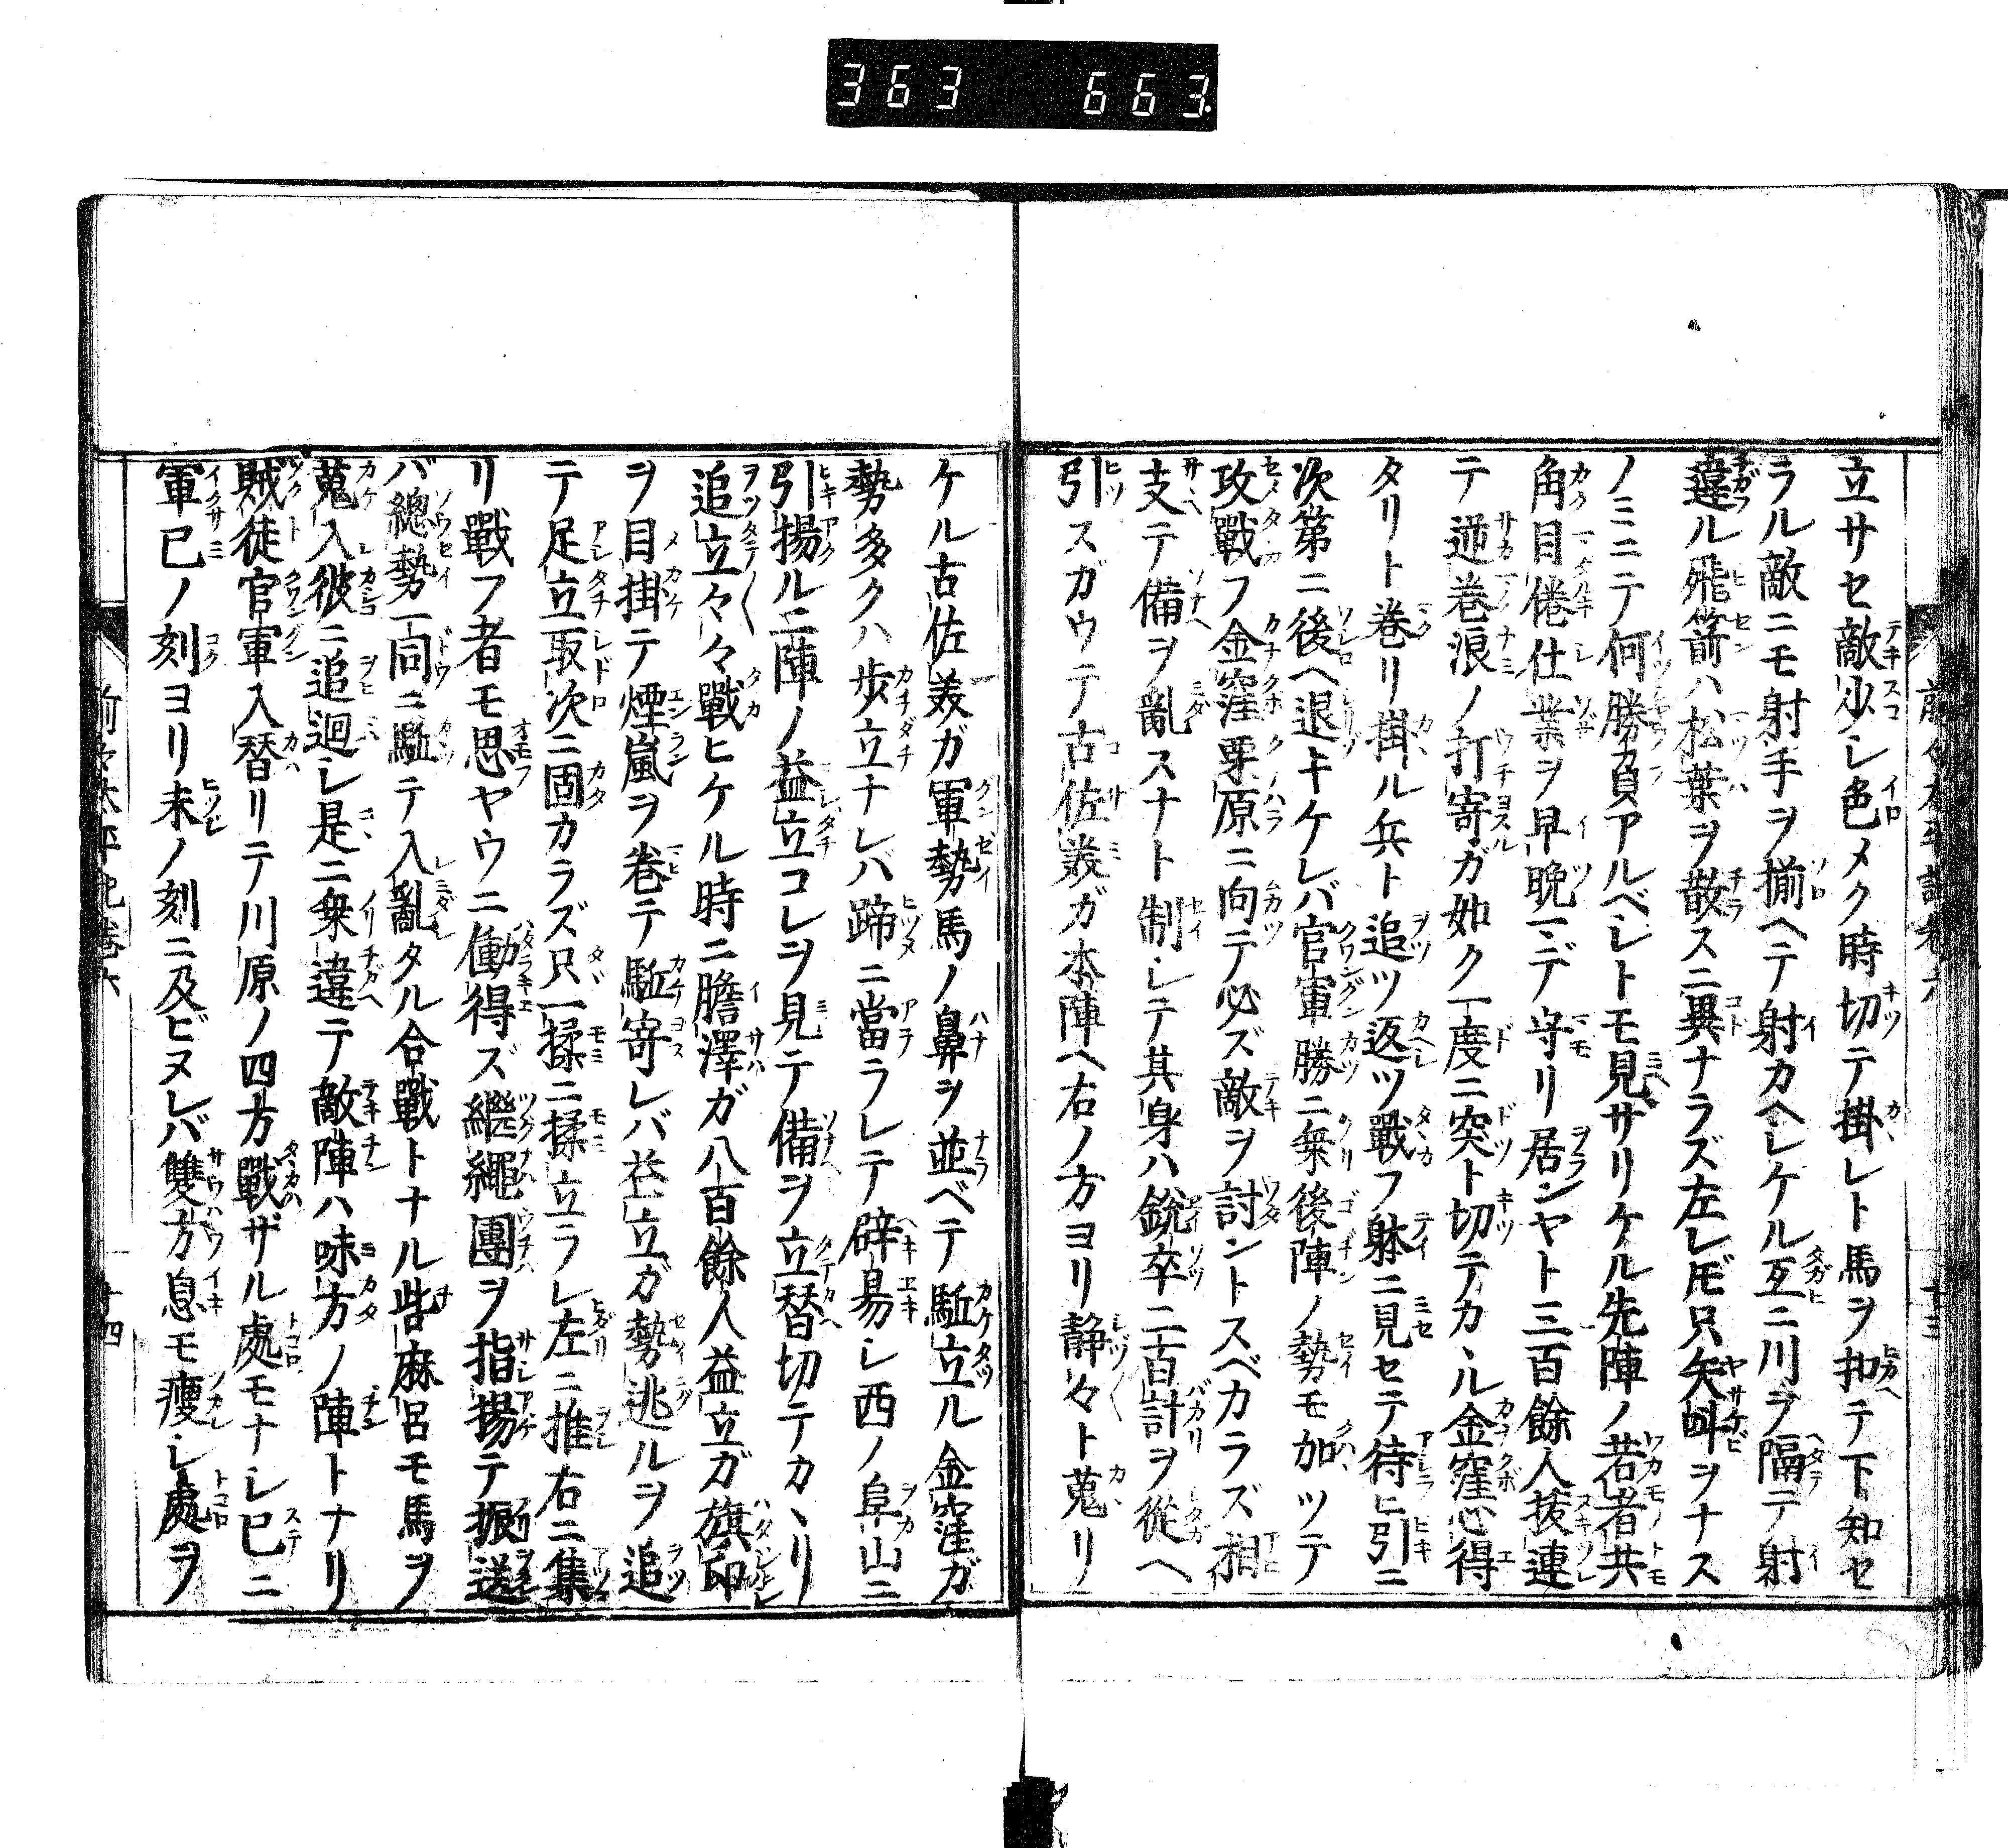 363 663
立サセ敵少シ色メク時切テ掛レト馬ヲ扣テ下知セ
ラル敵ニモ射手ヲ揃ヘテ射カヘシケル互ニ川ヲ隔テ射
違ル飛箭ハ松葉ヲ散スニ異ナラズ左レ𪜈只矢叫ヲナス
ノミニテ何勝負アルベシトモ見ザリケル先陣ノ若者共
角目倦仕業ヲ早晩マデ守リ居ンヤト三百餘人拔連
テ逆巻浪ノ打寄ガ如ク一度ニ突ト切テカヽル金窪心得
タリト巻リ掛ル兵ト追ツ返ツ戰フ躰ニ見セテ待ヒ引ニ
次第ニ後ヘ退キケレバ官軍勝ニ乗後陣ノ勢モ加ツテ
攻戰フ金窪栗原ニ向テ必ズ敵ヲ討ントスベカラズ相
支テ備ヲ亂スナト制シテ其身ハ銳卒二百計ヲ從ヘ
引スガウテ古佐美ガ本陣ヘ右ノ方ヨリ静々ト蒐リ
ケル古佐美ガ軍勢馬ノ鼻ヲ並ベテ駈立ル金窪ガ
勢多クハ歩立ナレハ蹄ニ當ラレテ辟易シ西ノ阜山ニ
引揚ル二陣ノ益立コレヲ見テ備ヲ立替切テカヽリ
追立々々戰ヒケル時ニ膽澤ガ八百餘人益立ガ旗印
ヲ目掛テ煙嵐ヲ巻テ駈寄レバ益立ガ勢逃ルヲ追
テ足立取次ニ固カラズ只一揉ニ揉立ラレ左ニ推右ニ集
リ戰フ者モ思ヤウニ働得ズ繼繩團ヲ指揚テ振送
バ總勢一同ニ駈テ入亂タル合戰トナル呰麻呂モ馬ヲ
蒐入彼ニ追廻シ是ニ乗違テ敵陣ハ味方ノ陣トナリ
賊徒官軍入替リテ川原ノ四方戰ザル處モナシ已ニ
軍巳ノ刻ヨリ未ノ刻ニ及ビヌレバ雙方息モ痩シ處ヲ